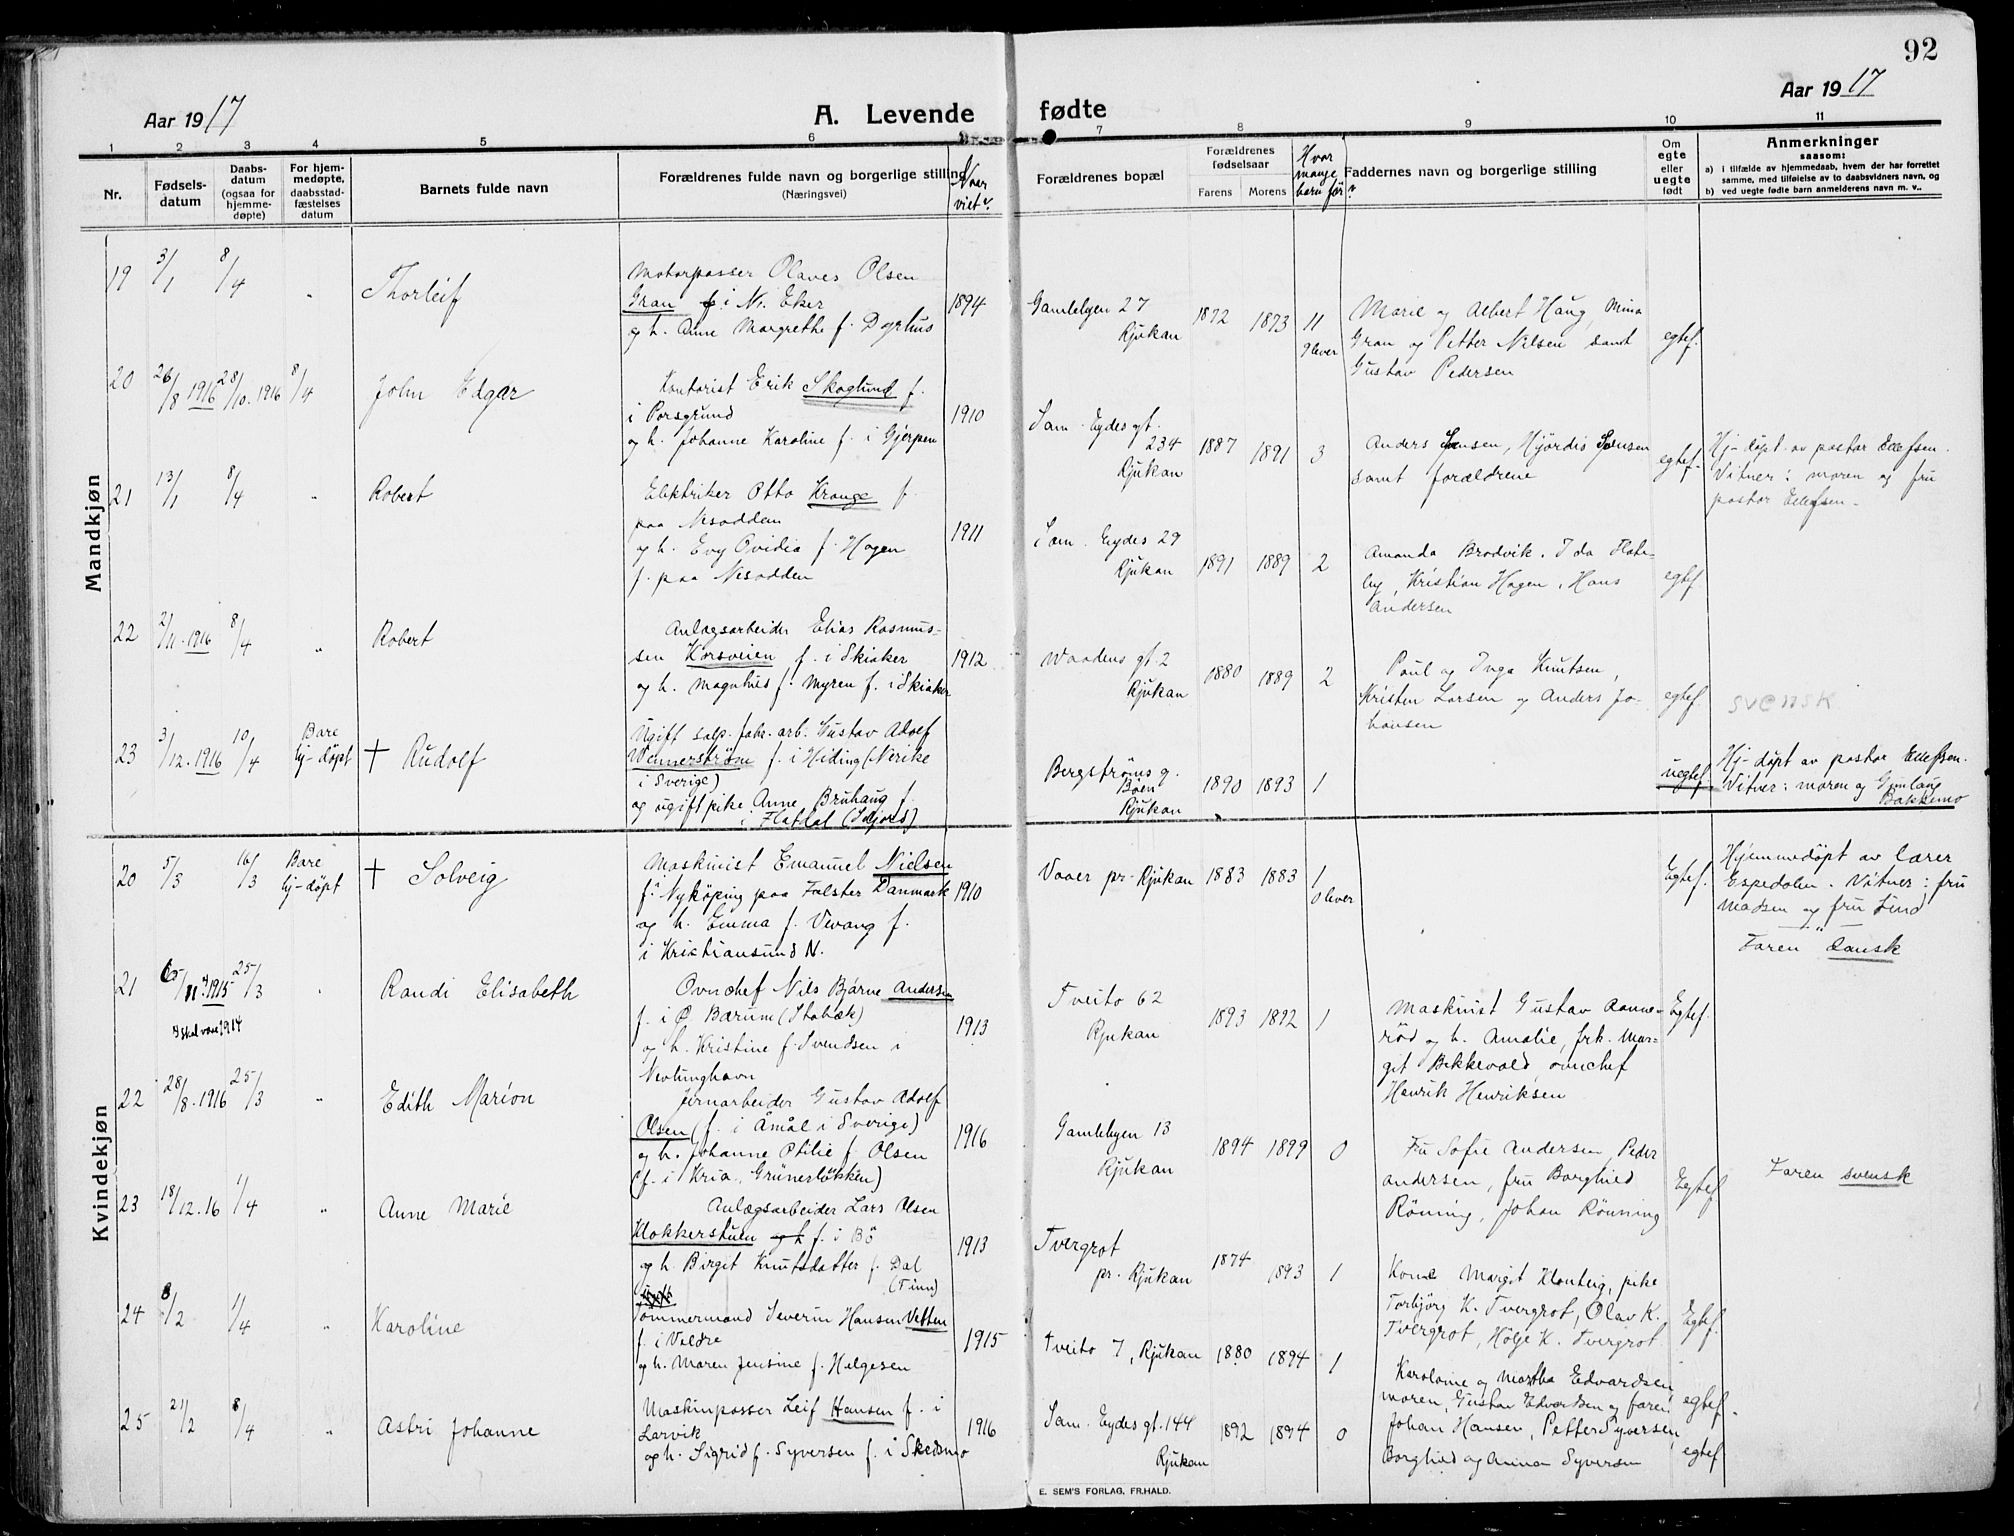 92
Aar 1917
A. Levende fødte
Aar 1917
1 2 3 4 5 6 7 8 9 10 11
Nr.
Fødsels-
datum
Daabs-
datum
(ogsaa for
hjemme-
døpte)
For hjem-
medøpte,
daabsstad-
fæstelses
datum
Barnets fulde navn
Forældrenes fulde navn og borgerlige stilling
(Næringsvei)
Naar
viet?
Forældrenes bopæl
Forældrenes
fødselsaar
Farens Morens
Hvor
mange
barn før?
Faddernes navn og borgerlige stilling
Om
egte
eller
uegte
født
Anmerkninger
saasom:
a) i tilfælde av hjemmedaab, hvem der har forrettet
samme, med tilføielse av to daabsvidners navn, og
b) ved uegte fødte barn anmelderens navn m. v..
Mandkjøn
19 3/1 8/4 " Thorleif
Motorpasser Olaves Olsen
Gran f. i N. Eker
og h. Anne Margrethe f. Dyrhus
1894
Gamlebyen 27
Rjukan
1872 1873 11
9 lever
Marie og Albert Haug, Mina
Gran og Petter Nilsen samt
Gustav Pedersen
egtef.
20 26/8 1916 28/10. 1916 8/4 John Edgar
Kontorist Erik Skoglund f.
i Porsgrund
og h. Johanne Karoline f. i Gjerpen
1910
Sam. Eydes gt.
234
Rjukan
1887 1891 3
Anders Jensen, Hjördis Jensen
samt forældrene
egtef.
Hj-döpt av pastor Ellefsen.
Vitner: moren og fru
pastor Ellefsen.
21 13/1 8/4 " Robert
Elektriker Otto Krange f.
paa Nesodden
og h. Evy Ovidia f. Hagen
f. paa Nesodden
1911
Sam. Eydes 29
Rjukan
1891 1889 2
Amanda Brodvik. Ida Flate-
by, Kristian Hagen, Hans
Andersen
egtef.
22 2/11.1916 8/4 " Robert
Anlægsarbeider Elias Rasmus-
sen Korsveien f. i Skiaker
og h. Magnhus f. Myren f. i Skiaker
1912
Waadens gt. 2
Rjukan
1880 1889 2
Paul og Inga Knutsen,
Kristen Larsen og Anders Jo-
hansen
egtef.
SVENSK
23 3/12.1916 10/4 Bare
hj-døpt † Rudolf
Ugift salp. fabr. arb. Gustav Adolf
Wennerström f. i Hiding (Nerike
i Sverige)
og ugift pike Anne Bruhaug f.
i Flatdal (Seljord)
Bergströms g.
Böen
Rjukan
1890 1893 1
uegtef.
Hj-döpt av pastor Ellefsen.
Vitner: moren og Gunlaug
Bakkemo
Kvindekjøn
20 5/3 16/3 Bare
hj-døpt † Solveig
Maskinist Emanuel Nielsen
f. Nyköping paa Falster Danmark
og h. Emma f. Vevang f.
i Kristiansund N.
1910
Vaaer pr. Rjukan
1883 1883 1
0 lever
Egtef.
Hjemmedöpt av lærer
Espedalen. Vitner: fru
Madsen og fru Lind
Faren dansk
21 /11.1915 25/3 " Randi Elisabeth
? skal være 1914
Ovnchef Nils Bjarne Andersen
f. i Ø Bærum (Stabæk)
og h. Kristine f. Svendsen i
Nevlunghavn
1913
Tveito 62
Rjukan
1893 1892 1
Maskinist Gustav Aanne-
röd og h. Amalie, frk. Mar-
git Bekkevold, ovnchef
Henrik Henriksen
Egtef.
22 28/8.1916 25/3 " Edith Marion
Jernarbeider Gustav Adolf
Olsen (f. i Åmål i Sverige)
og h. Johanne Otilie f. Olsen
(f. i Kria, Grünerløkken)
1916
Gamlebyen 13
Rjukan
1894 1899 0
Fru Sofie Andersen, Peder
Andersen, fru Borghild
Röning, Johan Rönning
Egtef.
Faren svensk
23 18/12.16 1/4 " Anne Marie
Anlægsarbeider Lars Olsen
Klokkerstuen og h f. i Bö
og h. Birgit Knutsdatter f. Dal
(Tinn)
1913
Tvergrot
pr. Rjukan
1874 1893 1
Kone Margit Klonteig, pike
Torbjörg K. Tvergrot, Olav K.
Tvergrot, Hölje K. Tvergrot
Egtef.
24 8/2 1/4 " Karoline
Tømmermand Severin Hansen Vetten
f. i Valdre
og h. Maren Jensine f. Helgesen
1915
Tveito 7, Rjukan
1880 1894 1
Karoline og Martha Edvardsen,
moren, Gustav Edvardsen og faren
egtef.
25 21/2 8/4 " Astri Johanne
Maskinpasser Leif Hansen f. i
Larvik
og h. Sigrid f. Syversen f. i Skedsmo
1916
Sam. Eydes gt. 144
Rjukan
1892 1894 0
Johan Hansen, Petter Syversen,
Borghild og Anna Syversen
egtef.
E. SEM'S FORLAG, FR.HALD.